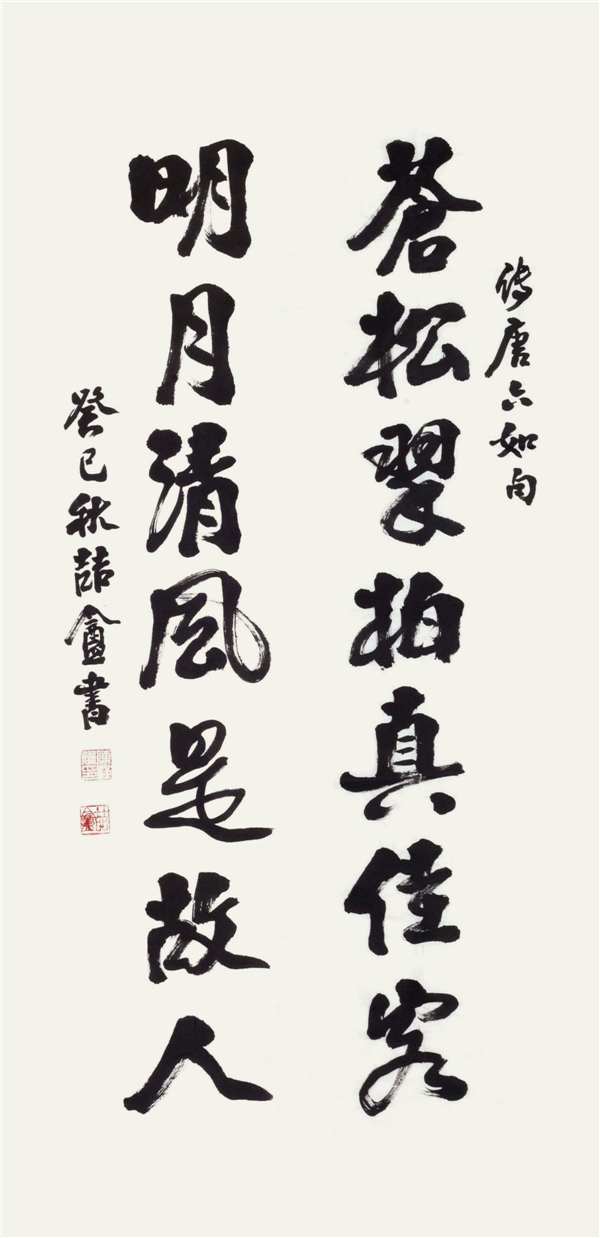 傳唐六如句
蒼松翠柏真佳客
明月清風是故人
癸巳秋喆盦書